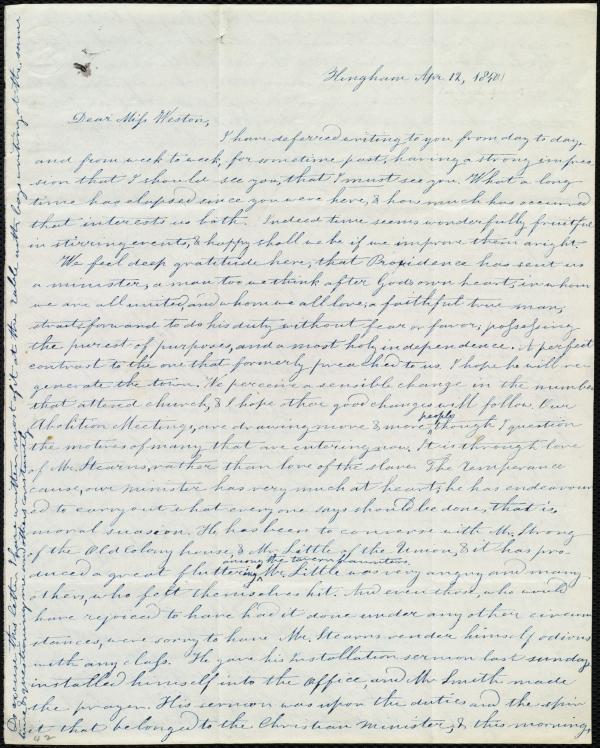 Hingham Apr 12, 1840
Dear Miss Weston,
I have deferred writing to you from day to day,
and from week to week, for sometime past, having a strong impres
sion that I should see you, that I must see you. What a long
time has elapsed since you were here, & how much has occurred
that interests us both. Indeed time seems wonderfully fruitful
in stirring events, & happy shall we be if we improve them aright.
We feel deep gratitude here, that Providence has sent us
a minister, a man too we think after God's own heart, in whom
we are all united, and whom we all love; a faithful true man,
straitforward to do his duty without fear or favor, possessing
the purest of purposes, and a most holy independence. A perfect
contrast to the one that formerly preached to us. I hope he will re-
generate the town. We perceive a sensible change in the number
that attend church, & I hope that good changes will follow. Our
Abolition Meetings, are drawing more & more people, though I question
the motives of many that are entering now, It is through love
of Mr. Stearns, rather than love of the slave. The Temperance
cause, our minister has very much at heart; he has endeavour
ed to carry out what everyone says should be done, that is,
moral suasion. He has been to converse with Mr. Strong
of the Old Colony house, & Mr. Little of the Union, & it has pro
duced a great fluttering among the tavern haunters. Mr. Little was very angry and many
others, who felt themselves hit. And even those, who would
have rejoiced to have had it done under any other circum
stances, were sorry to have Mr. Stearns render himself odious
with any class. He gave his Installation sermon last sunday,
installed himself into the Office and Mr Smith made
the prayer. His sermon was upon the duties and the spir
it that belonged to the Christian Minister, & this morning,
Do excuse this letter. I have written most of it at the table with boys writing at the same
time & questioning me and others constantly
42